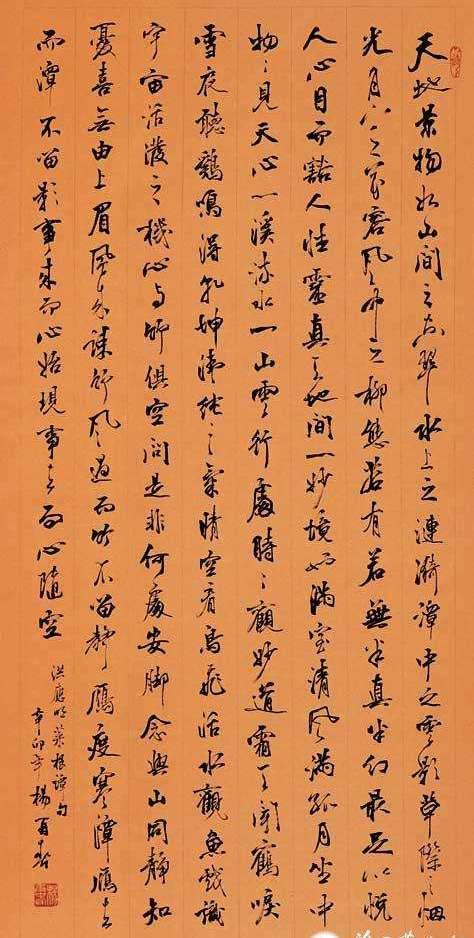 天地景物如山間之空翠水上之漣漪潭中之雲影草際之烟
光月下之花容風中之柳態若有若無半真半幻最足以悅
人心目而豁人性靈真天地間一妙境也滿室清風滿几月坐中
物物見天心一溪流水一山雲行處時時觀妙道霜天聞鶴唳
雪夜聽鷄鳴得乾坤清純之氣晴空看鳥飛活水觀魚戲識
宇宙活潑之機心與竹俱空問是非何處安脚念與山同靜知
憂喜無由上眉風來疎竹風過而竹不留聲雁度寒潭雁去
而潭不留影事來而心始現事去而心隨空
洪應明菜根譚句
辛卯年楊